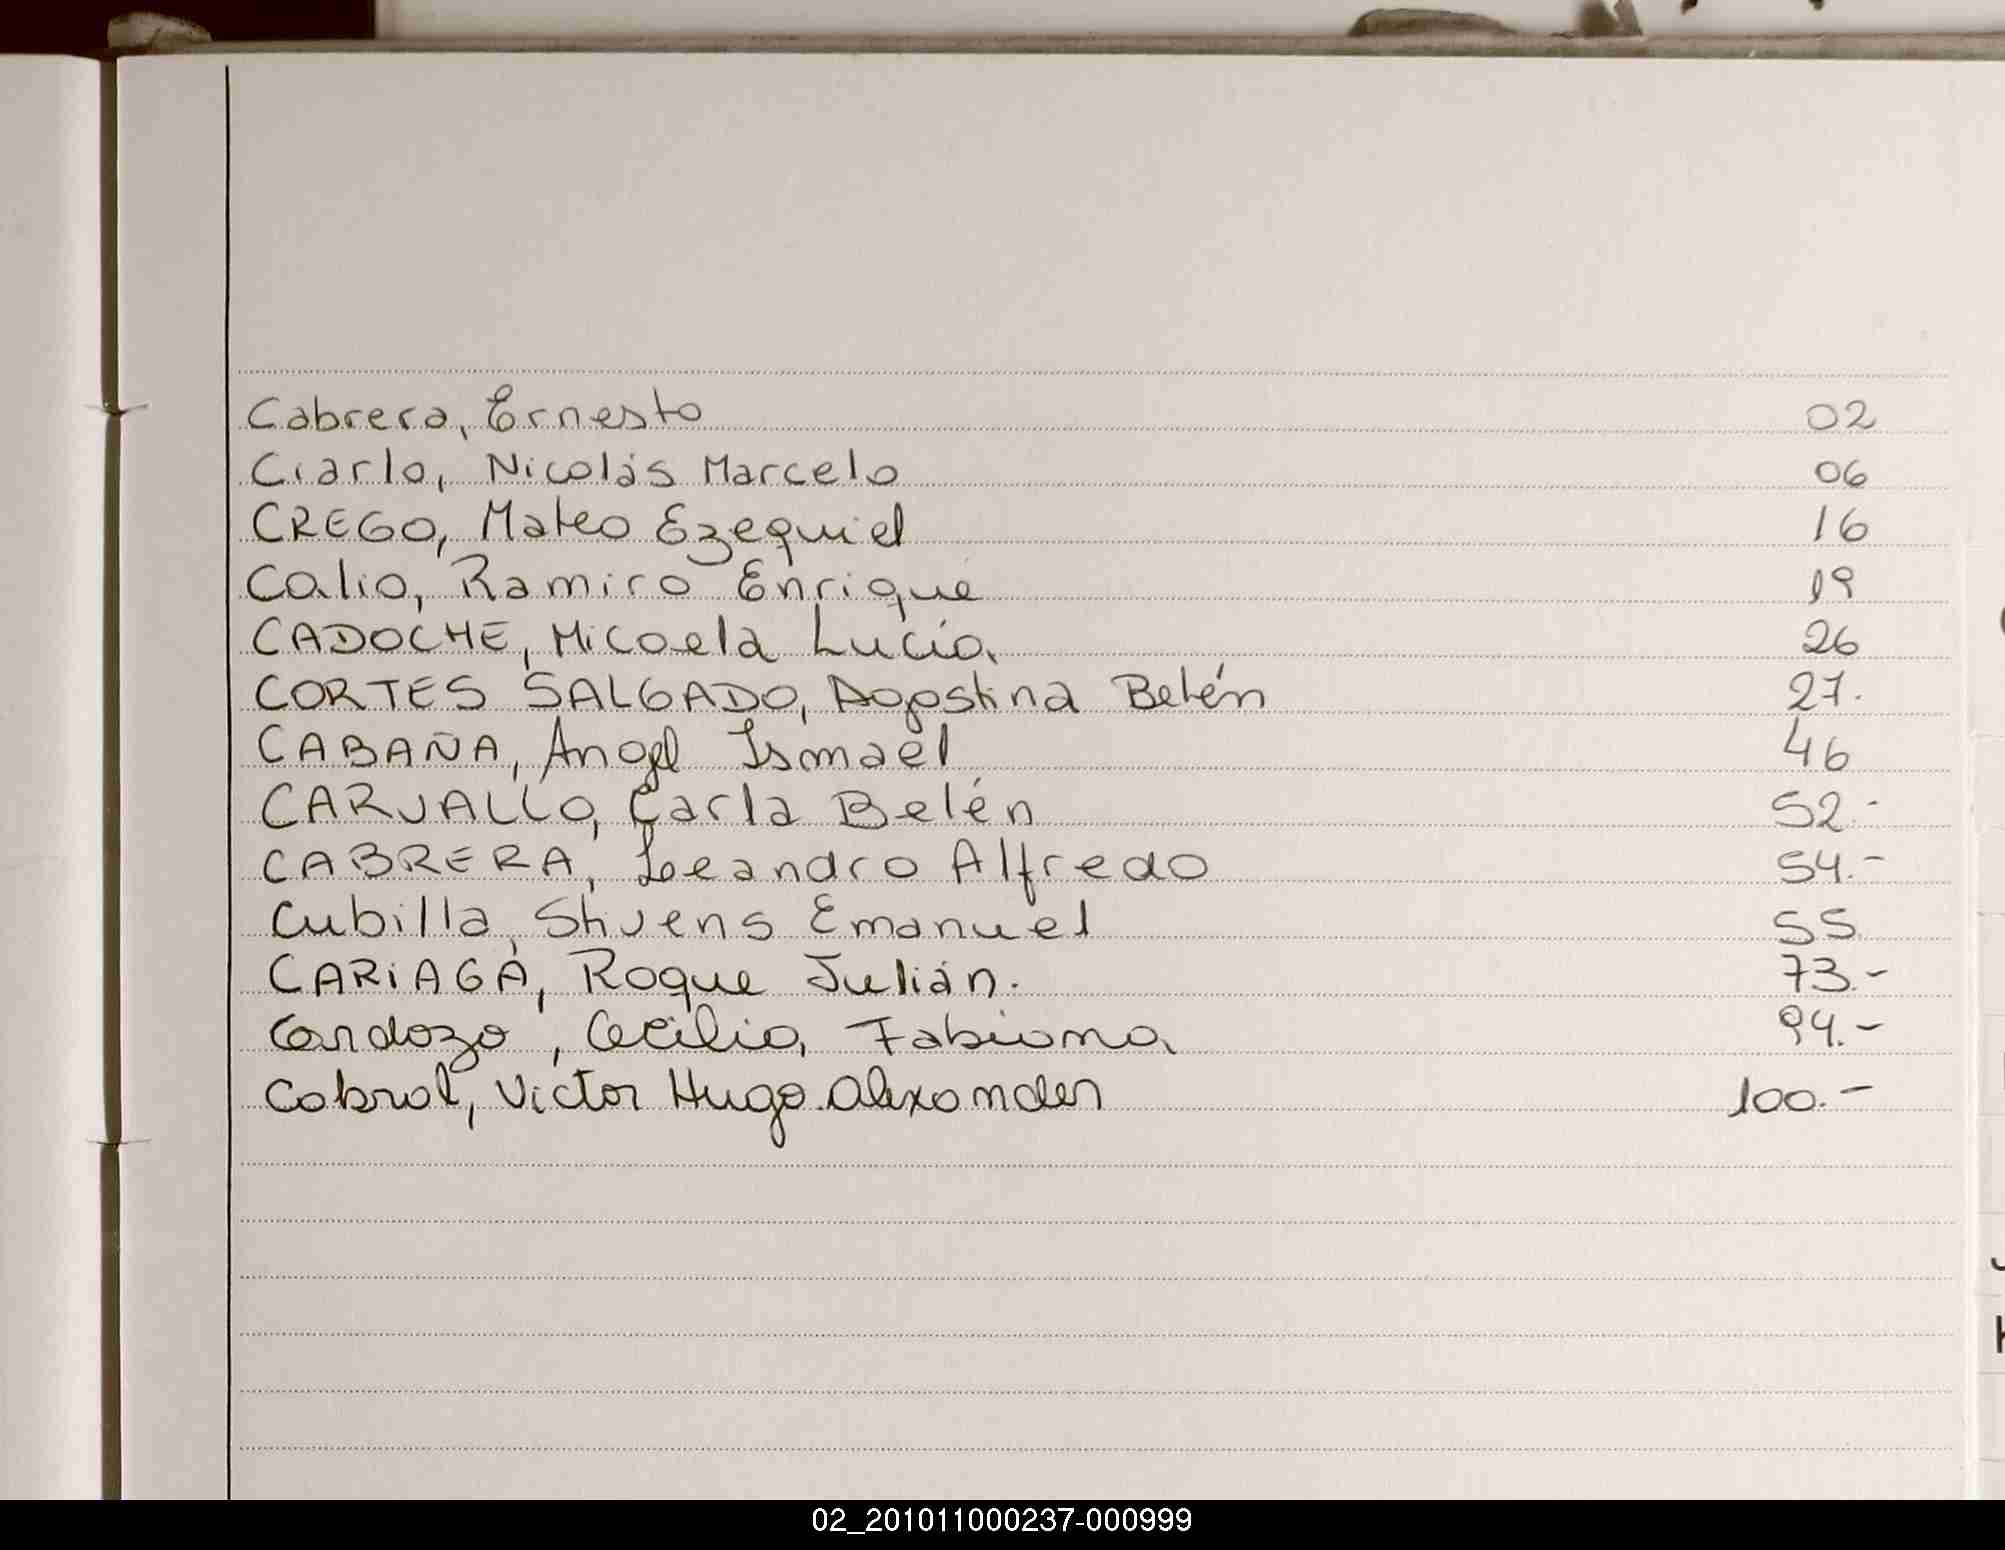 Cabrera, Ernesto 02
Ciarlo, Nicolás Marcelo 06
CREGO, Mateo Ezequiel 16
Calio, Ramiro Enrique 19
CADOCHE, Micaela Lucía 26
CORTES SALGADO, Agostina Belén 27.
CABAÑA, Angel Ismael 46
CARVALLO, Carla Belén 52.-
CABRERA, Leandro Alfredo 54.-
Cubilla, Stivens Emanuel 55.
CARIAGA, Roque Julián. 73.-
Cardozo, Cecilia, Fabiana 94.-
Cabral, Victor Hugo Alexander 100.-
02_201011000237-000999